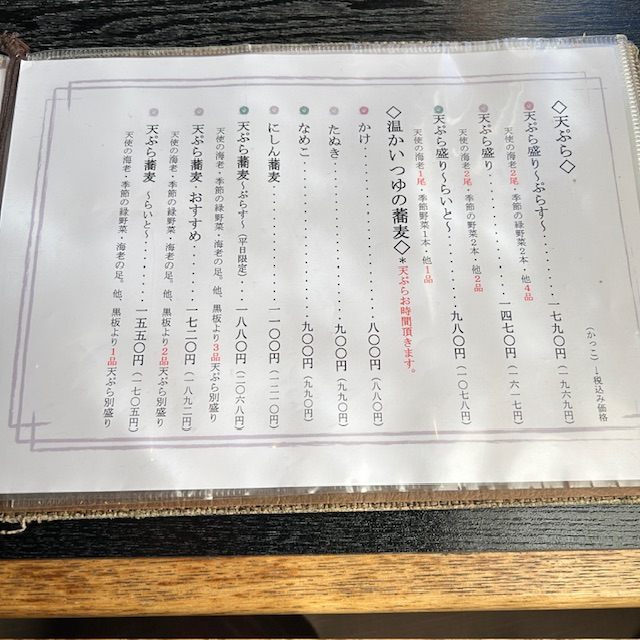 (かっこ)→税込み価格
◇天ぷら◇
天ぷら盛り〜ぷらす〜.........一七九〇円(一九六九円)
天使の海老2尾・季節の緑野菜2本・他4品
天ぷら盛り............一四七〇円(一六一七円)
天使の海老2尾・季節の野菜2本・他2品
天ぷら盛り〜らいと〜.........九八〇円(一〇七八円)
天使の海老1尾・季節野菜1本・他1品
◇温かいつゆの蕎麦◇*天ぷらお時間頂きます。
かけ...............八〇〇円(八八〇円)
たぬき...............九〇〇円(九九〇円)
なめこ...............九〇〇円(九九〇円)
にしん蕎麦............一一〇〇円(一二一〇円)
天ぷら蕎麦〜ぷらす〜(平日限定)...一八八〇円(二〇六八円)
天使の海老・季節の緑野菜・海老の足。他、黒板より3品天ぷら別盛り
天ぷら蕎麦・おすすめ.........一七二〇円(一八九二円)
天使の海老・季節の緑野菜・海老の足。他、黒板より2品天ぷら別盛り
天ぷら蕎麦 〜らいと〜.........一五五〇円(一七〇五円)
天使の海老・季節の緑野菜・海老の足。他、黒板より1品天ぷら別盛り